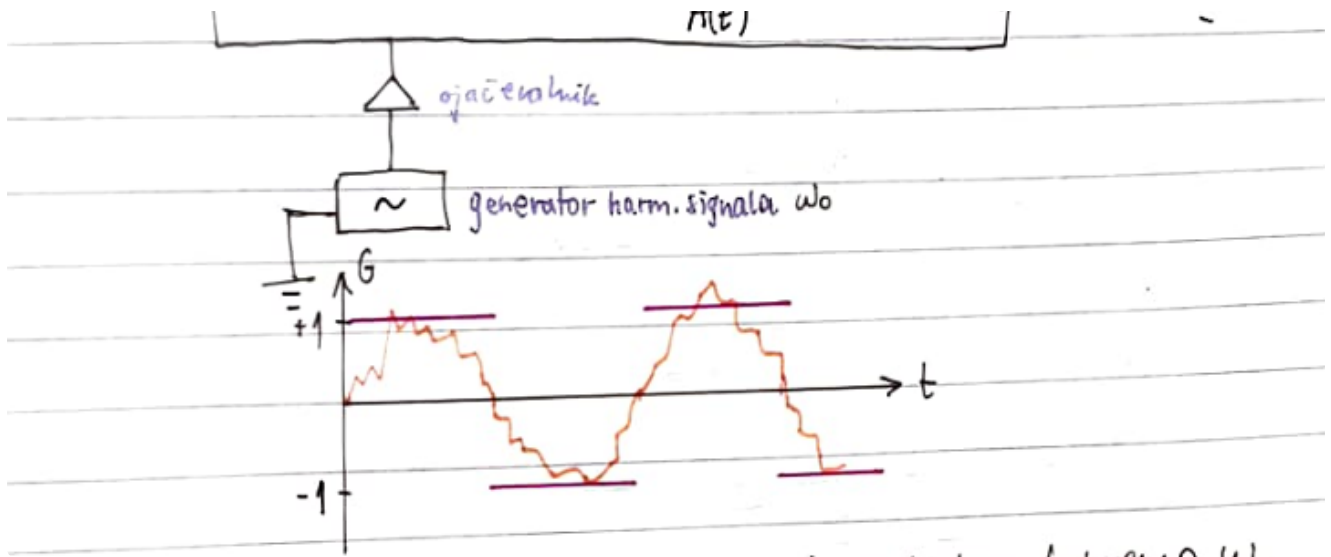 A(t)
ojačevalnik
~
generator harm. signala ω₀
G
+1
t
-1